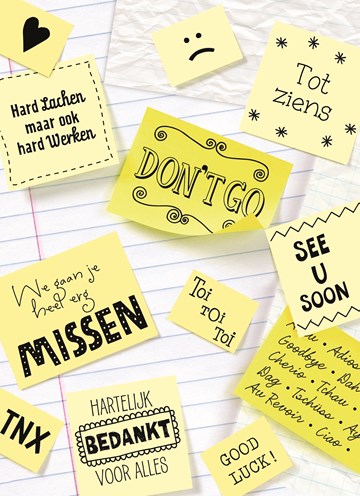 Tot
ziens
Hard Lachen
maar ook
hard Werken
DON'T GO
SEE
U
SOON
We gaan je
heel erg
MISSEN
Toi
Toi
Toi
Adios
Goodbye • Dah
Cherio • Tchau
Dag • Tschuss • Ay
Au Revoir •
Ciao •
TNX
HARTELIJK
BEDANKT
VOOR ALLES
GOOD
LUCK!